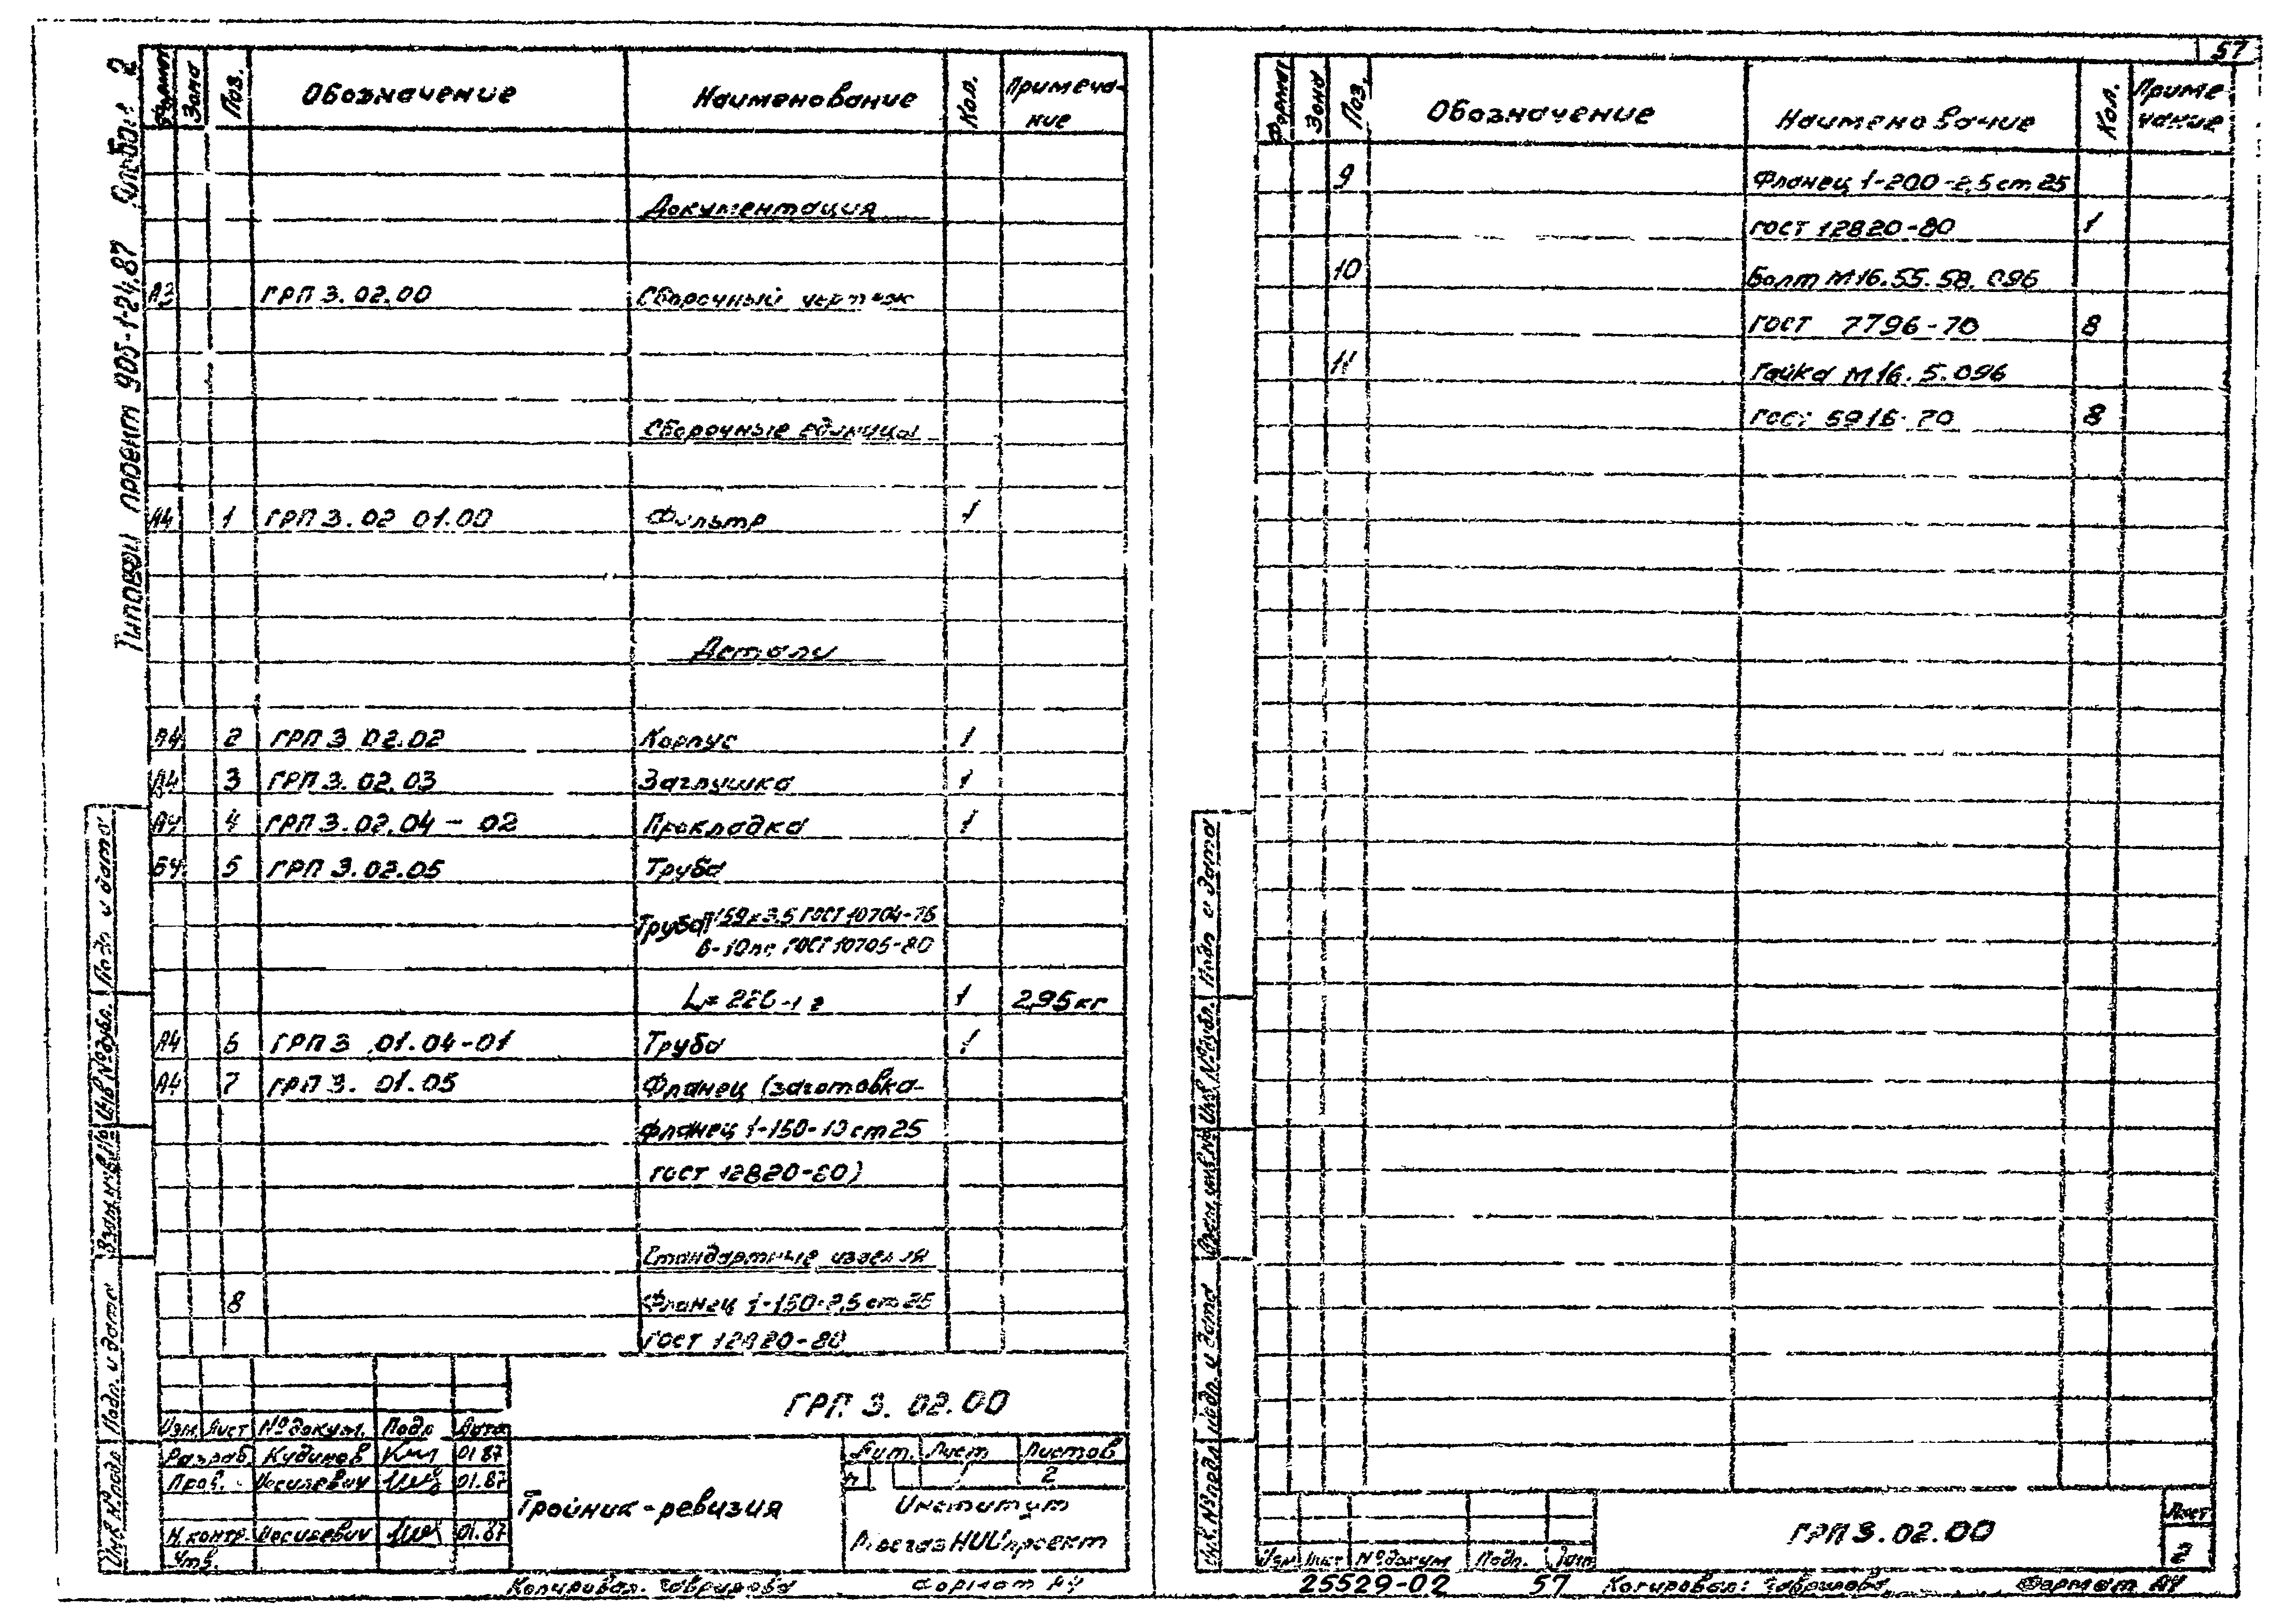 57
Типовой проект 905-1-24.87 Альбом 2
Формат Зона Поз. Обозначение Наименование Кол. Примеча-
ние
Документация
А3 ГРП 3.02.00 Сборочный чертеж
Сборочные единицы
А4 1 ГРП 3.02 01.00 Фильтр 1
Детали
А4 2 ГРП 3 02.02 Корпус 1
А4 3 ГРП 3.02.03 Заглушка 1
А4 4 ГРП 3.02.04 - 02 Прокладка 1
БЧ 5 ГРП 3.02.05 Труба
Труба 159х3,5 ГОСТ 10704-76
В-10пс ГОСТ 10705-80
L= 1 2,95кг
А4 6 ГРП 3 .01.04-01 Труба 1
А4 7 ГРП 3. 01.05 Фланец (заготовка-
фланец 1-150-10 ст 25
ГОСТ 12820-80)
Стандартные изделия
8 Фланец 1-150-2,5 ст 25
ГОСТ 12820-80
ГРП 3. 02.00
Изм. Лист № докум. Подп Дата
Разраб. Кудинов 01 87
Пров. 01.87
Н.контр. 01.87
Утв.
Тройник-ревизия
Лит. Лист Листов
1 2
Институт
МосгазНИИпроект
Копировал. Гаврилова Формат А4
Инв.№ подл Подп. и дата Взам.инв.№ Инв.№ дубл. Подп и дата
Формат Зона Поз. Обозначение Наименование Кол. Приме-
чание
9 Фланец 1-200-2,5 ст 25
ГОСТ 12820-80 1
10 Болт М16.55.58.096
ГОСТ 7796-70 8
11 Гайка М16.5.096
ГОСТ 5916-70 8
Инв.№ подл Подп. и дата Взам.инв.№ Инв.№ дубл. Подп и дата
Изм Лист № докум Подп. Дата
ГРП 3.02.00
Лист
2
25529-02 57 Копировал: Гаврилова Формат А4